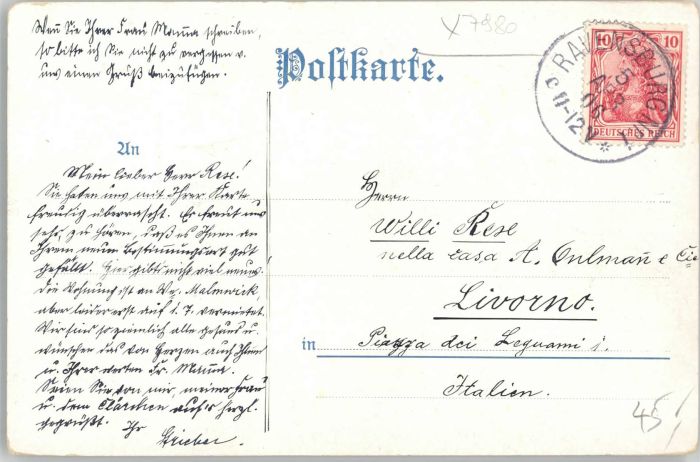 Wenn Sie Ihrer Frau Mama schreiben,
so bitte ich Sie nicht zu vergessen v.
uns einen Gruß beizufügen.
X7880
Postkarte.
RAVENSBURG
11-12V
10 10
DEUTSCHES REICH
An
Mein lieber Herr Rese!
Sie haben uns mit Ihrer Karte
freudig überrascht. Es freut uns
sehr, zu hören, daß es Ihnen an
Ihrem neuen Bestimmungsort gut
gefällt. Hier gibts nicht viel neues
die Wohnung ist an
aber leider erst auf 1. 7. vermietet.
Wir sind so ziemlich alle gesund u.
wünschen das von Herzen auch Ihnen
u. Ihrer werten Fr. Mama.
Seien Sie von mir, meiner Frau
u. dem Clärchen aufs herzl.
gegrüßt. Ihr
Herrn
Willi Rese
nella casa A.
Livorno.
in Piazza dei Legnami 1.
Italien.
45